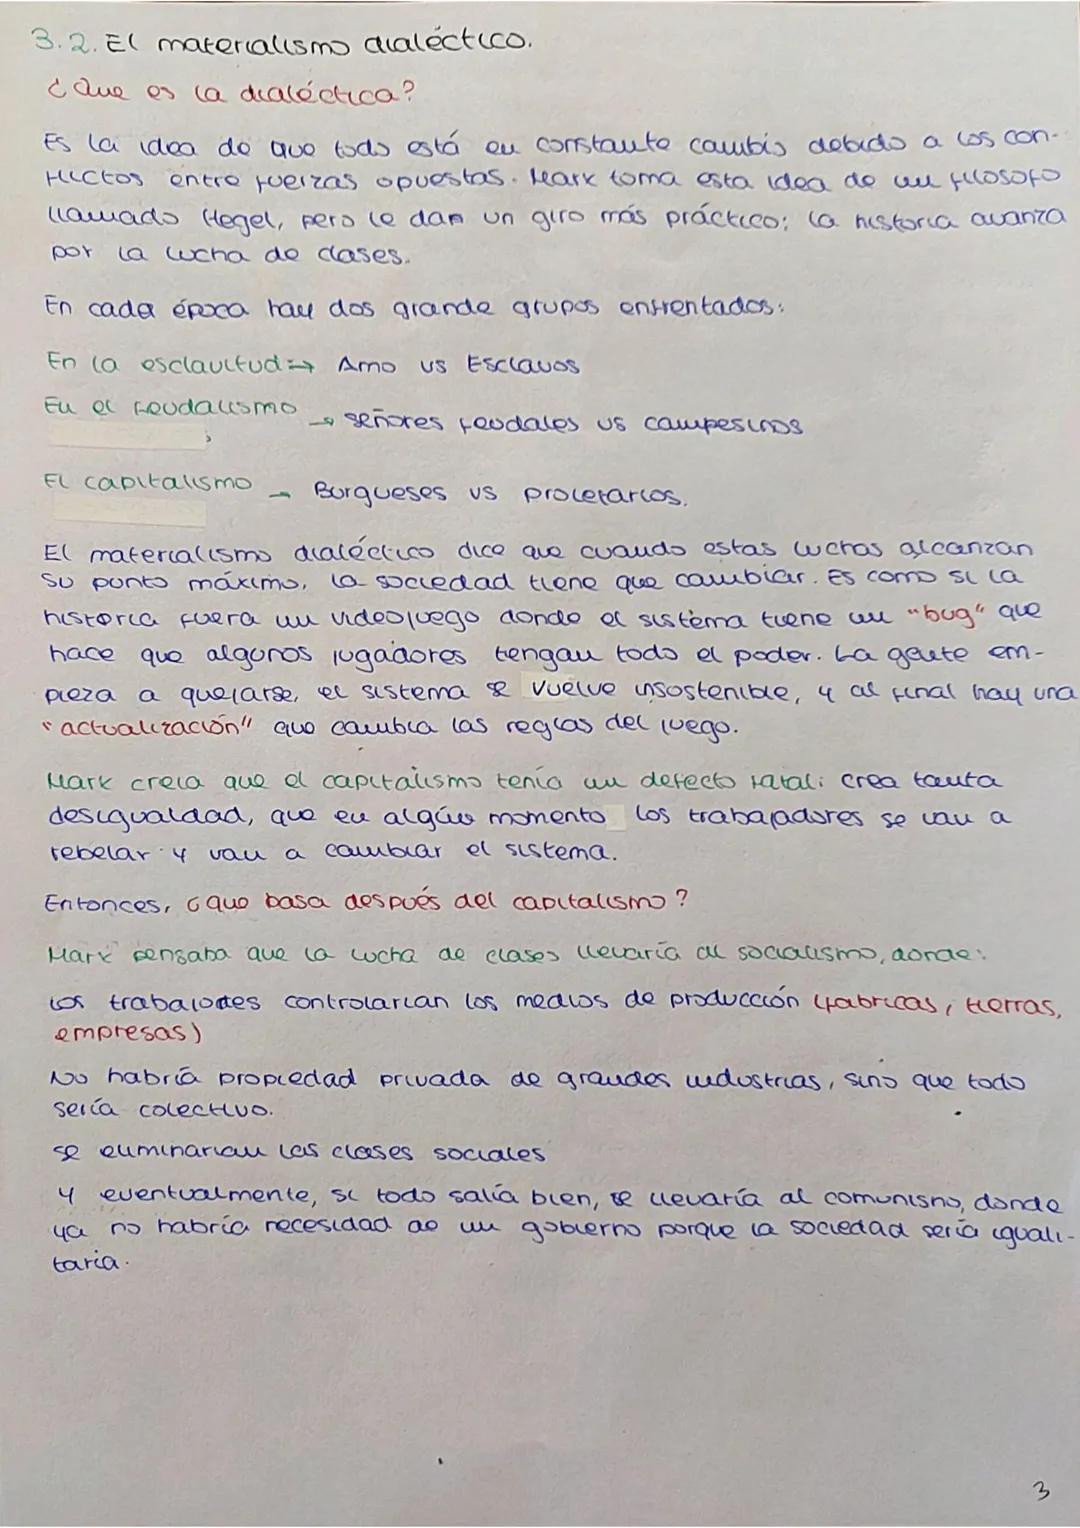 3.2. El materialismo dialéctico.
¿Que es la dialéctica?
Es la idea de que todo está en constante cambio debido a los con-
flictos entre fuerzas opuestas. Mark toma esta idea de un filosofo
llamado Hegel, pero le dan un giro más práctico: la historia avanza
por la lucha de clases.
En cada época hay dos grande grupos enfrentados:
En la esclavitud: → Amo vs Esclavos
En el feudalismo → señores feudales vs campesinos
El capitalismo → Burgueses vs proletarios.
El materialismo dialéctico dice que cuando estas luchas alcanzan
su punto máximo, la sociedad tiene que cambiar. Es como si la
historia fuera un videojuego donde el sistema tiene un "bug" que
hace que algunos jugadores tengan todo el poder. La gente em-
pieza a quejarse, el sistema se vuelve insostenible, y al final hay una
"actualización" que cambia las reglas del juego.
Mark creia que el capitalismo tenía un defecto fatal: crea tanta
desigualdad, que en algún momento los trabajadores se van a
rebelar y van a cambiar el sistema.
Entonces, ¿que basa después del capitalismo?
Mark pensaba que la lucha de clases llevaría al socialismo, donde:
los trabajodes controlarian los medios de producción (fabricas, tierras,
empresas)
No habría propiedad privada de grandes industrias, sino que todo
sería colectivo.
se eliminarian las clases sociales
y eventualmente, si todo salía bien, se llevaría al comunisno, donde
ya no habría necesidad de un gobierno porque la sociedad sería iguali-
taria.
3